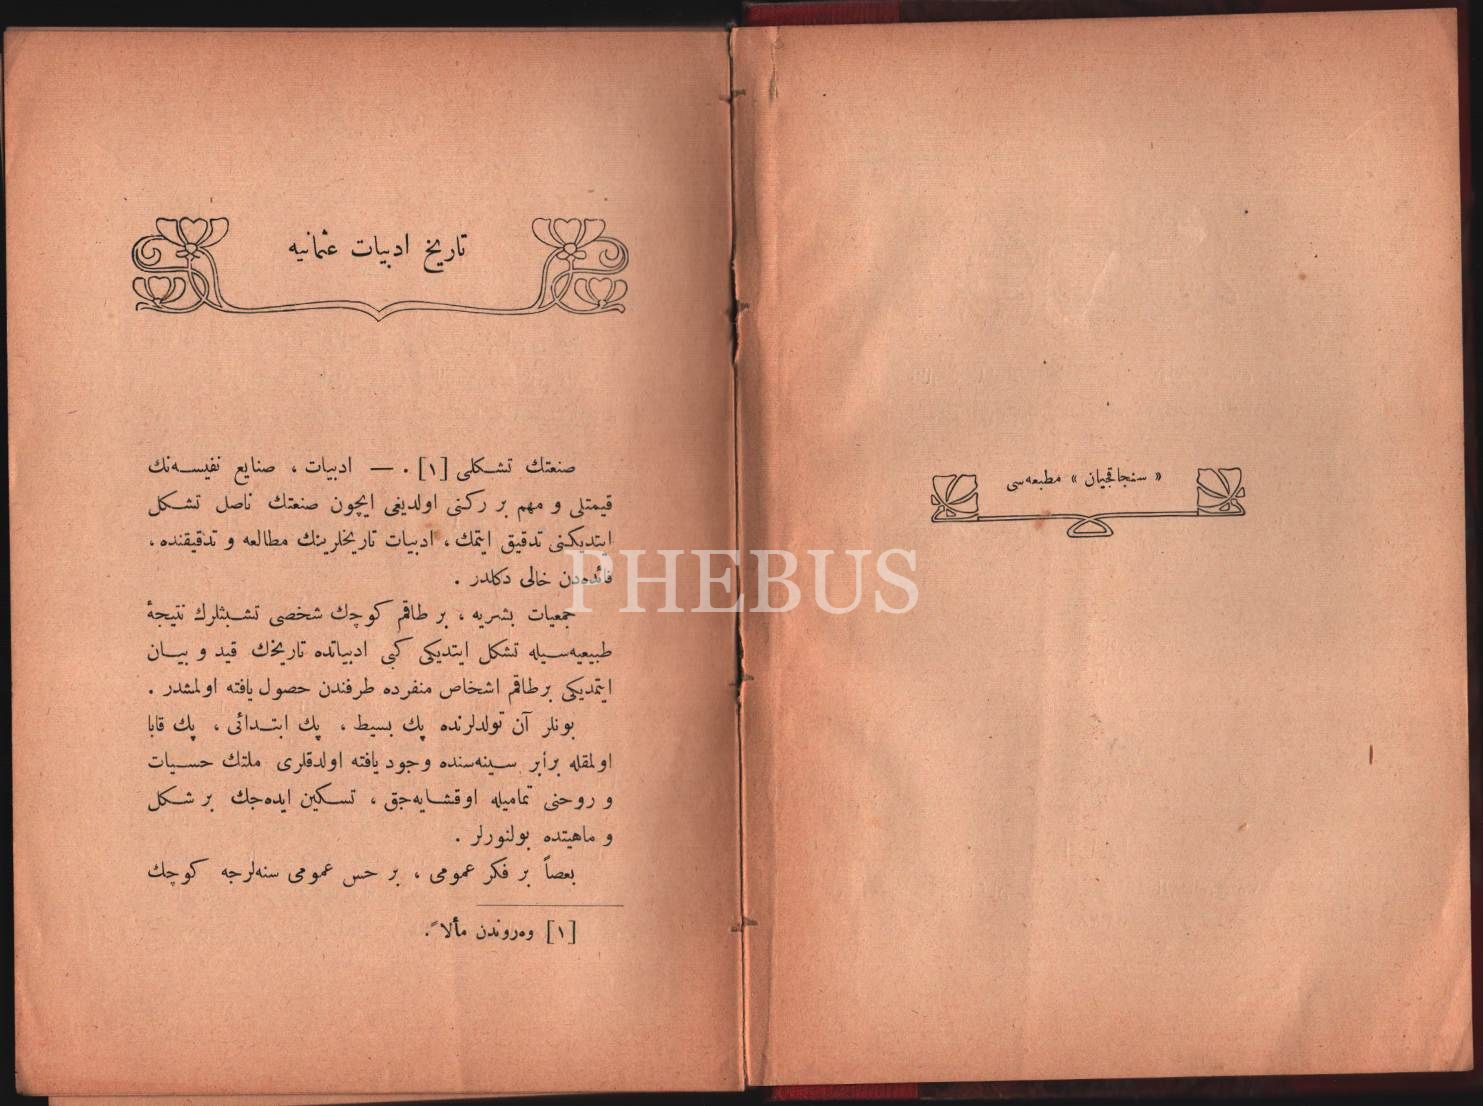 « سنجاقجیان » مطبعه‌سی
تاریخ ادبیات عثمانیه
صنعتك تشـكلی [۱] . — ادبیات ، صنایع نفیسـه‌نك
قیمتلی و مهم بر ركنی اولدیغی ایچون صنعتك ناصل تشـكل
ایتدیكنی تدقیق ایتمك ، ادبیات تاریخلرینك مطالعه و تدقیقنده ،
فائده‌دن خالی دكلدر .
جمعیات بشریه ، بر طاقم كوچك شخصی تشـبثلرك نتیجۀ
طبیعیه‌سـیله تشكل ایتدیكی كبی ادبیاتده تاریخك قید و بیـان
ایتمدیكی بر طاقم اشخاص منفرده طرفندن حصول یافته اولمشدر .
بونلر آن تولدلرنده پك بسیط ، پك ابتـدائی ، پك قابا
اولمقله برابر سـینه‌سنده وجود یافته اولدقلری ملتك حسـیات
و روحنی تمامیله اوقشـایه‌جق ، تسـكین ایده‌جك بر شـكل
و ماهیتده بولنورلر .
بعضاً بر فكر عمومی ، بر حس عمومی سنه‌لرجه كوچك
[۱] وه‌روندن مألاً .
PHEBUS